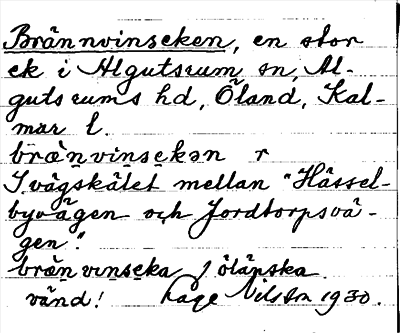 Brännvinseken, en stor
ek i Algutsrum sn, Al-
gutsrums hd, Öland, Kal-
mar l.
bræṉviṉsekən r
I vägskälet mellan "Hässel-
byvägen och Jordtorpsvä-
gen".
bræṉviṉseka / öländska
vänd! Åge Nilsson 1930.